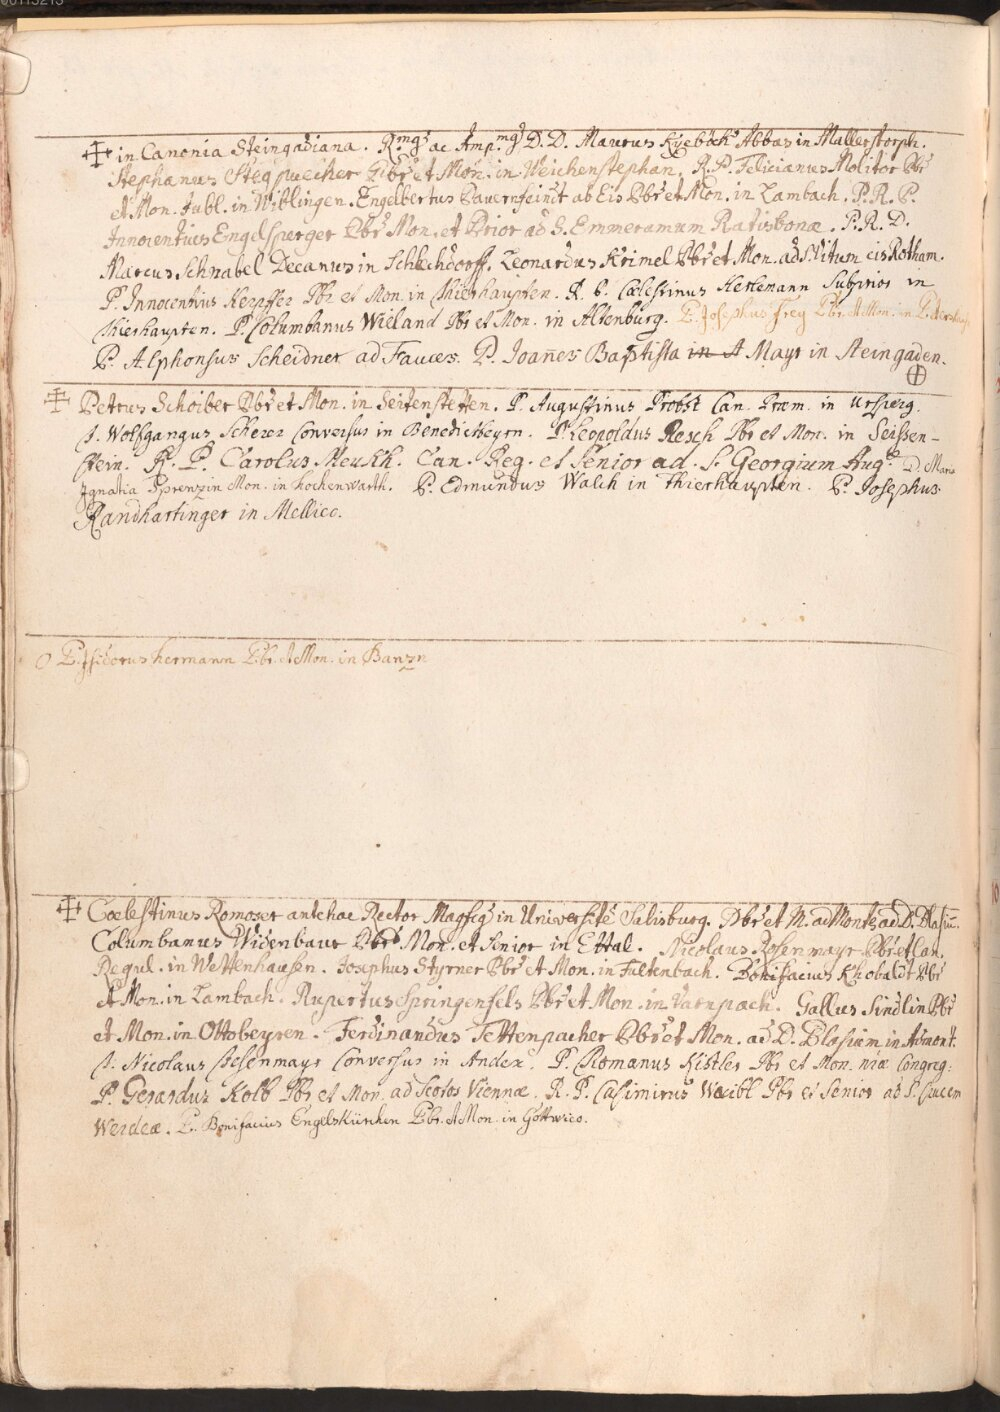 ✠ in Canonia Steingadiana. R.mg ac Amp.mg D. D. Maurus Kyeböck Abbas in Mallerstorph.
Stephanus Stegpuecher Pbr et Mon. in Weichenstephan. R. P. Felicianus Molitor Pbr
et Mon. Jubl. in Wiblingen. Engelbertus Pauernfeindt ab Eis Pbr et Mon. in Lambach. P. R. P.
Innocentius Engelsperger Pbr Mon. et Prior ad S. Emmeramum Ratisbonæ. P. R. D.
Marcus Schnabel Decanus in Schlechdorff. Leonardus Krimel Pbr et Mon. ad S. Vitum cis Rotham.
P. Innocentius Kerpffer Pbr et Mon. in Thierhaupten. R. P. Cœlestinus Kettemann Subprior in
Thierhaupten. P. Columbanus Wieland Pbr et Mon. in Altenburg. P. Josephus Frey Pbr. et Mon. in
P. Alphonsus Scheidner ad Fauces. P. Joannes Baptista in A Mayr in Steingaden.
✠ Petrus Schoiber Pbr et Mon. in Seitenstetten. P. Augustinus Probst Can. Præm. in Ursperg.
F. Wolfgangus Scherer Conversus in Benedictbeyrn. P. Leopoldus Resch Pbr et Mon. in Seissen-
stein. R. P. Carolus Meukh. Can. Reg. et Senior ad S. Georgium Aug.tæ D. Maria
Ignatia Sprenzin Mon. in Hochenwarth. P. Edmundus Walch in Thierhaupten. P. Josephus
Randhartinger in Mellico.
O P. Isidorus Hermann Pbr. et Mon. in Banzn
✠ Coelestinus Romoser antehac Rector Magfcg in Universite Salisburg. Pbr et M. ad Montes ad D. Blasiū.
Columbanus Widenbaur Pbr. Mon. et Senior in Ettal. Nicolaus Rosenmayr Pbr et Can.
Regul. in Wettenhausen. Josephus Styrner Pbr et Mon. in Fultenbach. Bonifacius Khobaldt Pbr
et Mon. in Lambach. Rupertus Springenfels Pbr et Mon. in Varnpach. Gallus Sindlin Pbr
et Mon. in Ottobeyren. Ferdinandus Tettenpacher Pbr et Mon. ad D. Blasium in Admont.
F. Nicolaus Posenmayr Conversus in Andex. P. Romanus Kistler Pbr et Mon. nræ Congreg:
P. Gerardus Kolb Pbr et Mon. ad Scotos Viennæ. R. P. Casimirus Waibl Pbr et Senior ad S. Crucem
Werdeæ. P. Bonifacius Engelskürchen Pbr. et Mon. in Gottwico.